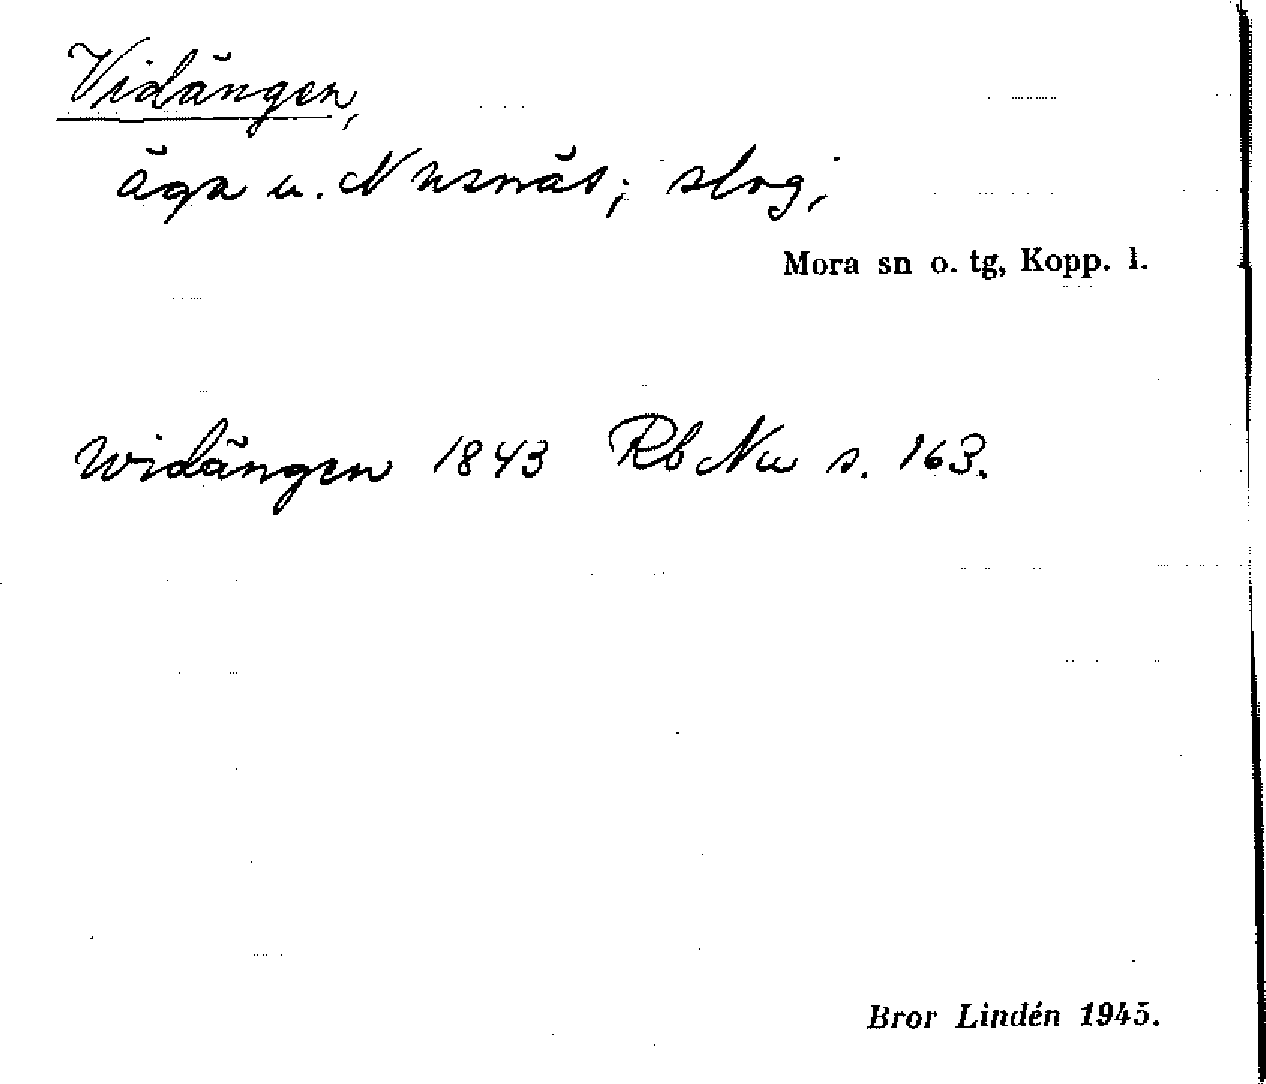 Vidängen,
äga u. Nusnäs; slog;
Mora sn o. tg, Kopp. l.
Widängen 1843 Rb Nu s. 163.
Bror Lindén 1945.